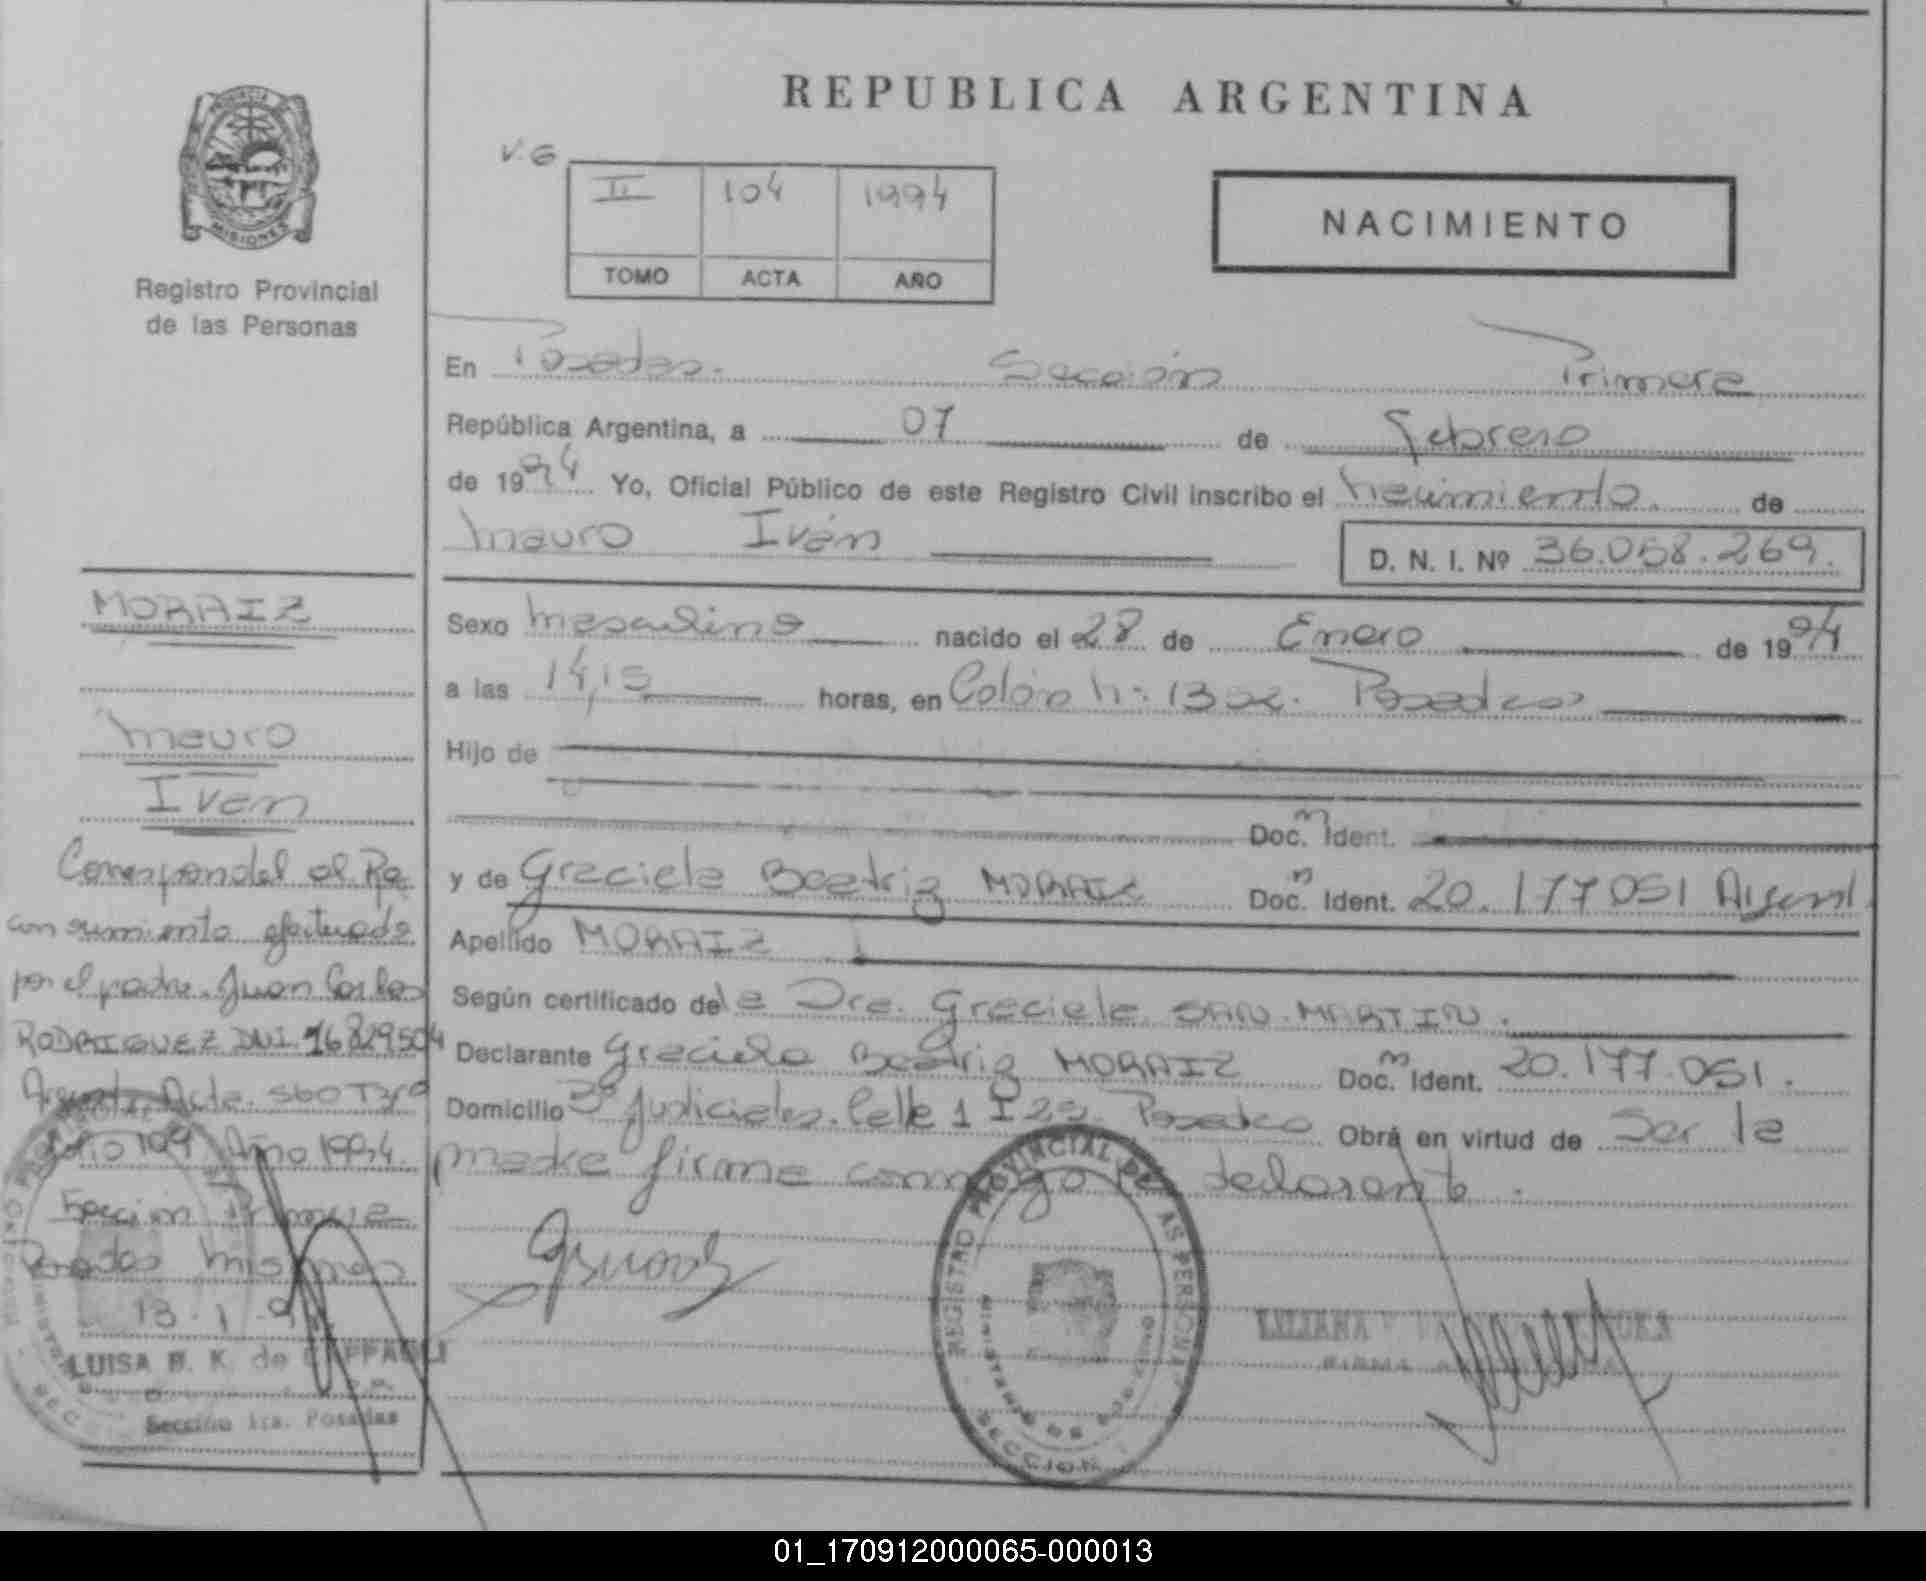 REPUBLICA ARGENTINA
PROVINCIA DE
MISIONES
Registro Provincial
de las Personas
V. G
II 104 1994
TOMO ACTA AÑO
NACIMIENTO
En Posadas. Sección Primera
República Argentina, a 07 de Febrero
de 1994 Yo, Oficial Público de este Registro Civil inscribo el nacimiento. de
Mauro Iván D. N. I. Nº 36.058.269.
Sexo Masculino nacido el 28 de Enero de 1994
a las 14,15 horas, en Colón n: Posadas
Hijo de
Doc. Ident.
y de Graciela Beatriz MORAIZ Doc. Ident. 20.177051 Argent.
Apellido MORAIZ
Según certificado de la Dra. Graciela SAN MARTIN.
Declarante Graciela Beatriz MORAIZ Doc. Ident. 20.177.051.
Domicilio Judiciales. Calle 1 Posadas Obra en virtud de Ser la
madre firma conmigo la declarante.
REGISTRO PROVINCIAL DE LAS PERSONAS
MINISTERIO DE GOBIERNO
SECCION
LILIANA
MORAIZ
Mauro
Iván
Corresponde al Re
conosimiento efectuado
por el padre Juan Carlos
RODRIGUEZ DNI. 16829504
Argent. Acta. 560 T3º
Folio 109 Año 1994.
Sección Primera
Posadas Misiones
13.1.9
LUISA B. K. de
Sección 1ra. Posadas
01_170912000065-000013